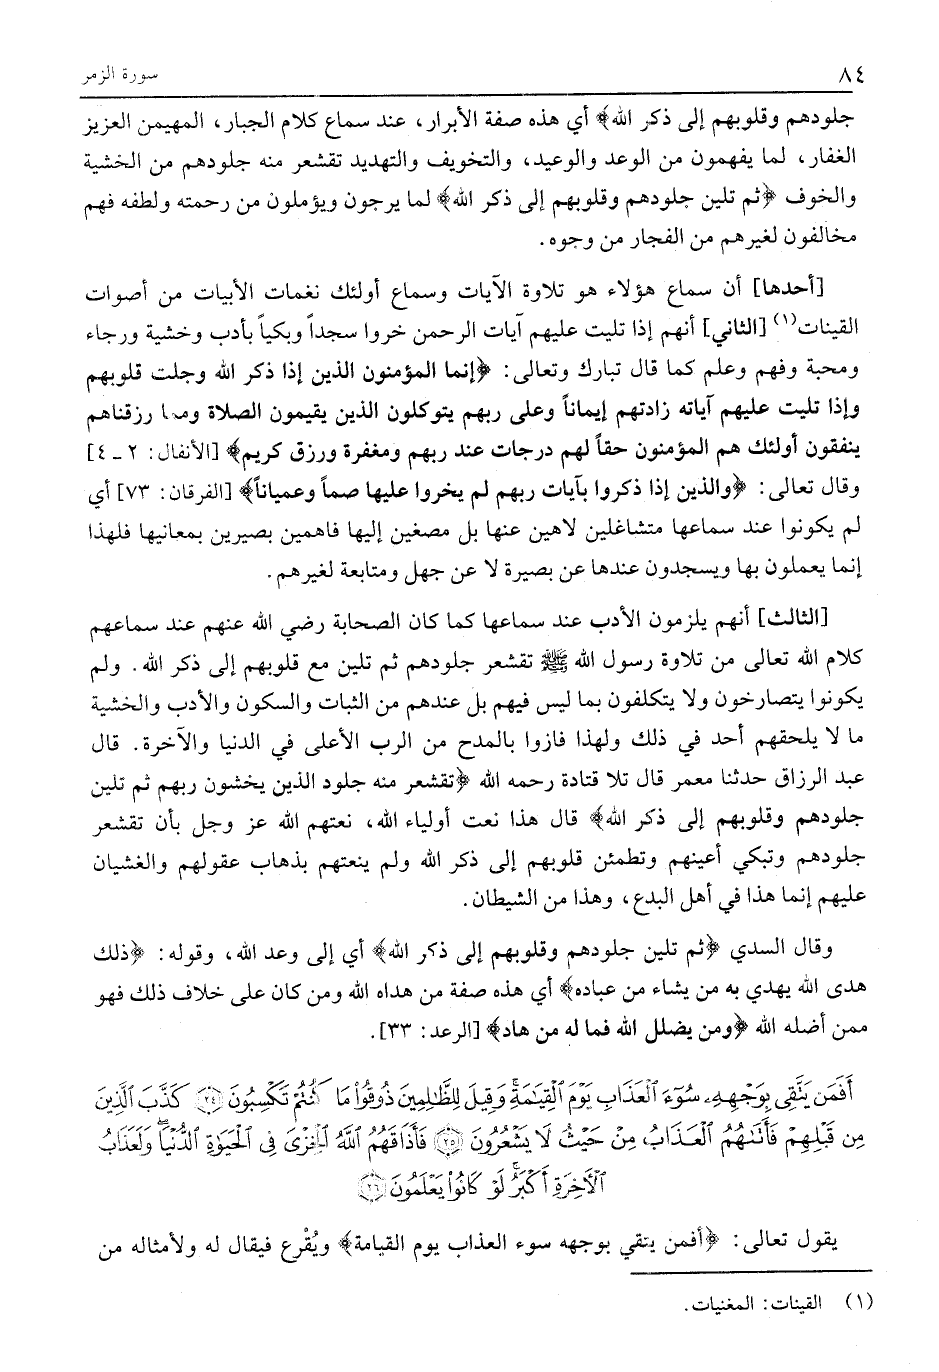 ٨٤
سورة الزمر
جلودهم وقلوبهم إلى ذكر الله﴾ أي هذه صفة الأبرار، عند سماع كلام الجبار، المهيمن العزيز
الغفار، لما يفهمون من الوعد والوعيد، والتخويف والتهديد تقشعر منه جلودهم من الخشية
والخوف ﴿ثم تلين جلودهم وقلوبهم إلى ذكر الله﴾ لما يرجون ويؤملون من رحمته ولطفه فهم
مخالفون لغيرهم من الفجار من وجوه.
[أحدها] أن سماع هؤلاء هو تلاوة الآيات وسماع أولئك نغمات الأبيات من أصوات
القينات(١) [الثاني] أنهم إذا تليت عليهم آيات الرحمن خروا سجداً وبكياً بأدب وخشية ورجاء
ومحبة وفهم وعلم كما قال تبارك وتعالى: ﴿إنما المؤمنون الذين إذا ذكر الله وجلت قلوبهم
وإذا تليت عليهم آياته زادتهم إيماناً وعلى ربهم يتوكلون الذين يقيمون الصلاة ومما رزقناهم
ينفقون أولئك هم المؤمنون حقاً لهم درجات عند ربهم ومغفرة ورزق كريم﴾ [الأنفال: ٢ ـ ٤]
وقال تعالى: ﴿والذين إذا ذكروا بآيات ربهم لم يخروا عليها صماً وعمياناً﴾ [الفرقان: ٧٣] أي
لم يكونوا عند سماعها متشاغلين لاهين عنها بل مصغين إليها فاهمين بصيرين بمعانيها فلهذا
إنما يعملون بها ويسجدون عندها عن بصيرة لا عن جهل ومتابعة لغيرهم.
[الثالث] أنهم يلزمون الأدب عند سماعها كما كان الصحابة رضي الله عنهم عند سماعهم
كلام الله تعالى من تلاوة رسول الله ﷺ تقشعر جلودهم ثم تلين مع قلوبهم إلى ذكر الله. ولم
يكونوا يتصارخون ولا يتكلفون بما ليس فيهم بل عندهم من الثبات والسكون والأدب والخشية
ما لا يلحقهم أحد في ذلك ولهذا فازوا بالمدح من الرب الأعلى في الدنيا والآخرة. قال
عبد الرزاق حدثنا معمر قال تلا قتادة رحمه الله ﴿تقشعر منه جلود الذين يخشون ربهم ثم تلين
جلودهم وقلوبهم إلى ذكر الله﴾ قال هذا نعت أولياء الله، نعتهم الله عز وجل بأن تقشعر
جلودهم وتبكي أعينهم وتطمئن قلوبهم إلى ذكر الله ولم ينعتهم بذهاب عقولهم والغشيان
عليهم إنما هذا في أهل البدع، وهذا من الشيطان.
وقال السدي ﴿ثم تلين جلودهم وقلوبهم إلى ذكر الله﴾ أي إلى وعد الله، وقوله: ﴿ذلك
هدى الله يهدي به من يشاء من عباده﴾ أي هذه صفة من هداه الله ومن كان على خلاف ذلك فهو
ممن أضله الله ﴿ومن يضلل الله فما له من هاد﴾ [الرعد: ٣٣].
أَفَمَن يَتَّقِى بِوَجْهِهِۦ سُوٓءَ ٱلْعَذَابِ يَوْمَ ٱلْقِيَٰمَةِ ۚ وَقِيلَ لِلظَّٰلِمِينَ ذُوقُوا۟ مَا كُنتُمْ تَكْسِبُونَ ﴿٢٤﴾ كَذَّبَ ٱلَّذِينَ
مِن قَبْلِهِمْ فَأَتَىٰهُمُ ٱلْعَذَابُ مِنْ حَيْثُ لَا يَشْعُرُونَ ﴿٢٥﴾ فَأَذَاقَهُمُ ٱللَّهُ ٱلْخِزْىَ فِى ٱلْحَيَوٰةِ ٱلدُّنْيَا ۖ وَلَعَذَابُ
ٱلْءَاخِرَةِ أَكْبَرُ ۚ لَوْ كَانُوا۟ يَعْلَمُونَ ﴿٢٦﴾
يقول تعالى: ﴿أفمن يتقي بوجهه سوء العذاب يوم القيامة﴾ ويُقْرع فيقال له ولأمثاله من
(١) القينات: المغنيات.